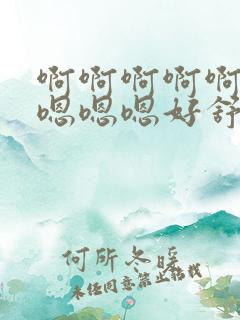 啊啊啊啊啊
嗯嗯嗯好舒
何所冬暖
未经同意禁止转载